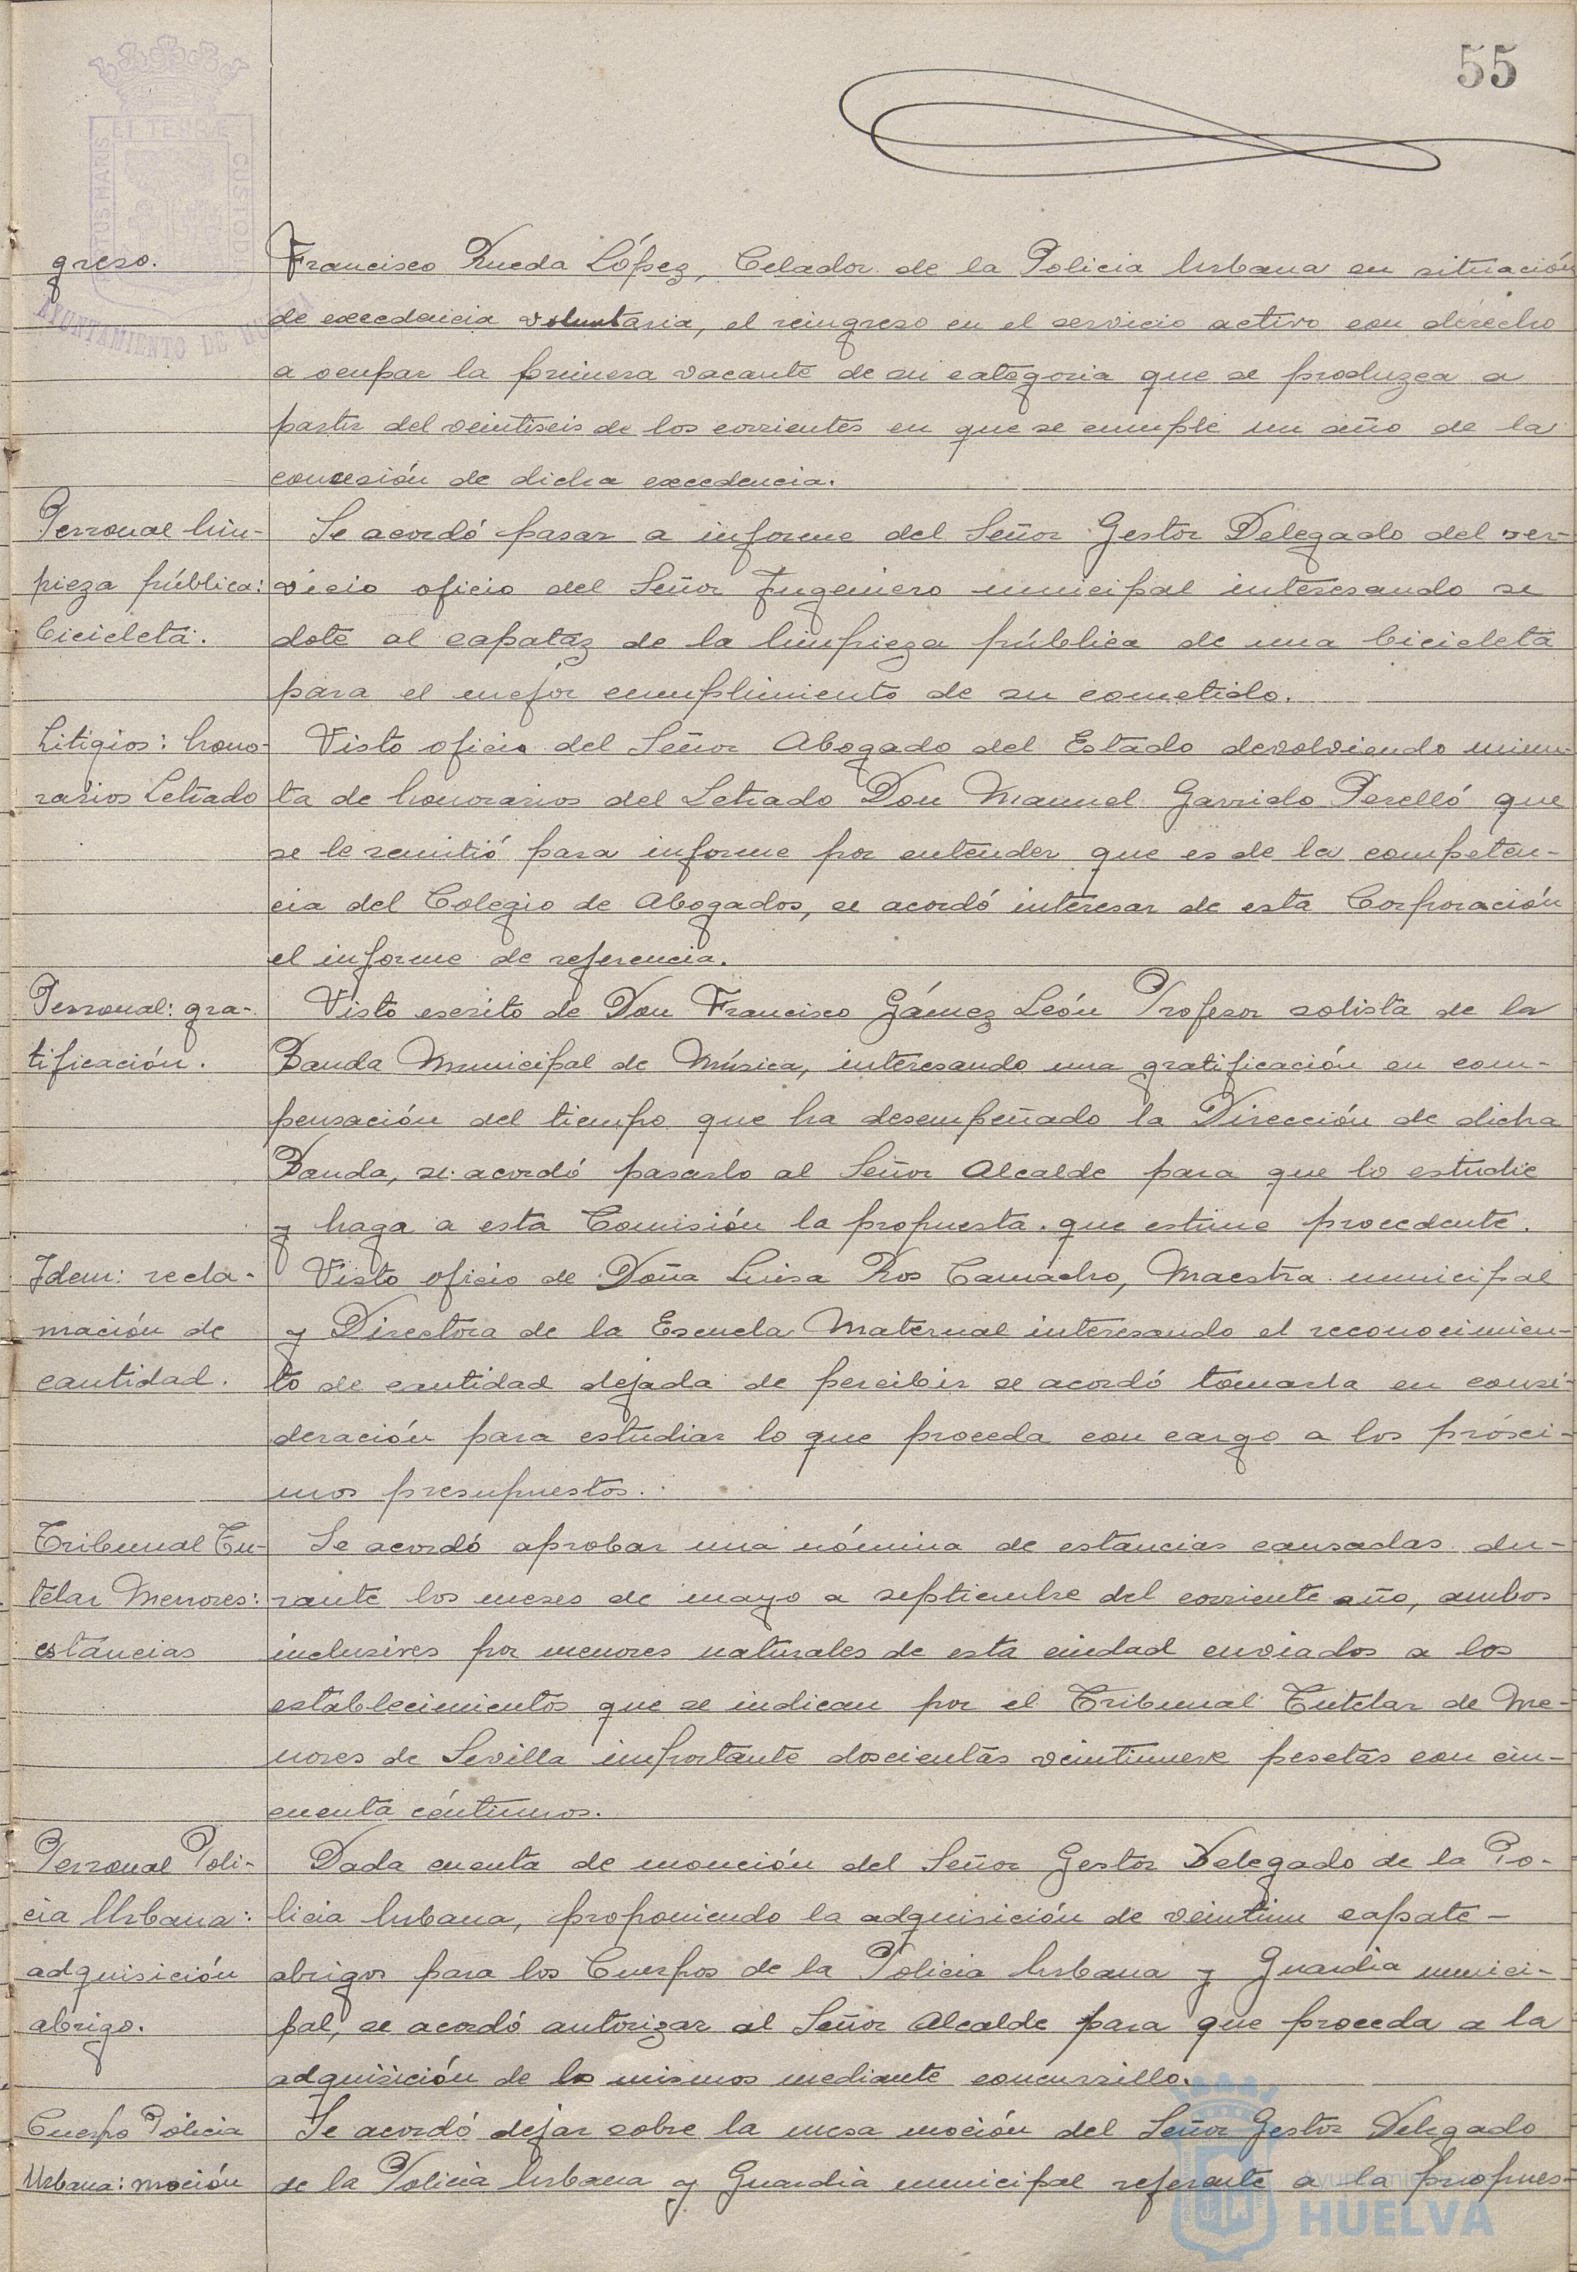 55
PORTUS MARIS ET TERRÆ CUSTODIA
AYUNTAMIENTO DE HUELVA
greso.
Francisco Rueda López, Celador de la Policia Urbana en situación
de excedencia voluntaria, el reingreso en el servicio activo con derecho
a ocupar la primera vacante de su categoria que se produzca a
partir del veintiseis de los corrientes en que se cumple un año de la
concesión de dicha excedencia.
Personal lim-
pieza pública:
bicicleta.
Se acordó pasar a informe del Señor Gestor Delegado del ser-
vicio oficio del Señor Ingeniero municipal interesando se
dote al capataz de la limpieza pública de una bicicleta
para el mejor cumplimiento de su cometido.
Litigios: hono-
rarios Letrado
Visto oficio del Señor Abogado del Estado devolviendo minu-
ta de honorarios del Letrado Don Manuel Garrido Perelló que
se le remitió para informe por entender que es de la competen-
cia del Colegio de Abogados, se acordó interesar de esta Corporación
el informe de referencia.
Personal: gra-
tificación.
Visto escrito de Don Francisco Gámez León Profesor solista de la
Banda Municipal de Música, interesando una gratificación en com-
pensación del tiempo que ha desempeñado la Dirección de dicha
Banda, se acordó pasarlo al Señor Alcalde para que lo estudie
y haga a esta Comisión la propuesta que estime procedente.
Idem: recla-
mación de
cantidad.
Visto oficio de Doña Luisa Ros Camacho, Maestra municipal
y Directora de la Escuela Maternal interesando el reconocimien-
to de cantidad dejada de percibir se acordó tomarla en consi-
deración para estudiar lo que proceda con cargo a los próxi-
mos presupuestos.
Tribunal Tu-
telar Menores:
estancias
Se acordó aprobar una nómina de estancias causadas du-
rante los meses de mayo a septiembre del corriente año, ambos
inclusives por menores naturales de esta ciudad enviados a los
establecimientos que se indican por el Tribunal Tutelar de Me-
nores de Sevilla importante doscientas veintinueve pesetas con cin-
cuenta céntimos.
Personal Poli-
cia Urbana:
adquisición
abrigo.
Dada cuenta de moución del Señor Gestor Delegado de la Po-
licia Urbana, proponiendo la adquisición de veintiun capote-
abrigos para los Cuerpos de la Policia Urbana y Guardia munici-
pal, se acordó autorizar al Señor Alcalde para que proceda a la
adquisición de los mismos mediante concursillo.
Cuerpo Policia
Urbana: moción
Se acordó dejar sobre la mesa moción del Señor Gestor Delegado
de la Policia Urbana y Guardia municipal referente a la propues-
Ayuntamiento de
HUELVA